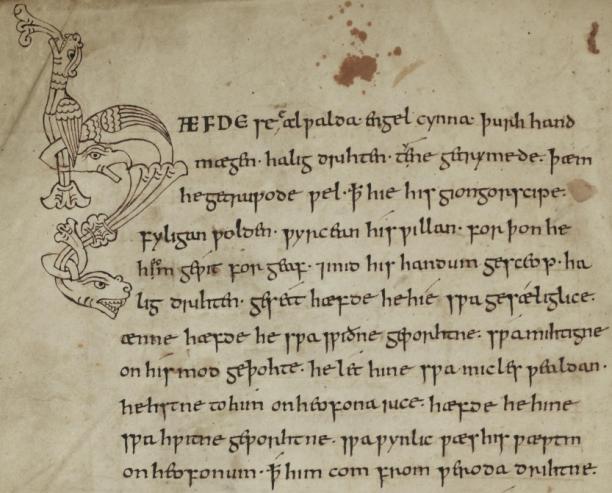 HÆFDE se ealƿalda· engel cynna· þurh hand
mægen· halig drihten· tene getrymede· þæm
he getruƿode ƿel· ꝥ hie his giongorscipe·
fyligan ƿolden· ƿyrcean his ƿillan· for þon he
him geƿit for geaf· ⁊mid his handum gesceop· ha
lig drihten· geset hæfde he hie sƿa gesæliglice·
ænne hæfde he sƿa sƿiðne geƿorhtne· sƿa mihtigne
on his mod geþohte· he let hine sƿa micles ƿealdan·
hehstne to him on heofona rice· hæfde he hine
sƿa hƿitne geƿorhtne· sƿa ƿynlic ƿæs his ƿæstm
on heofonum· ꝥ him com from ƿeroda drihtne·